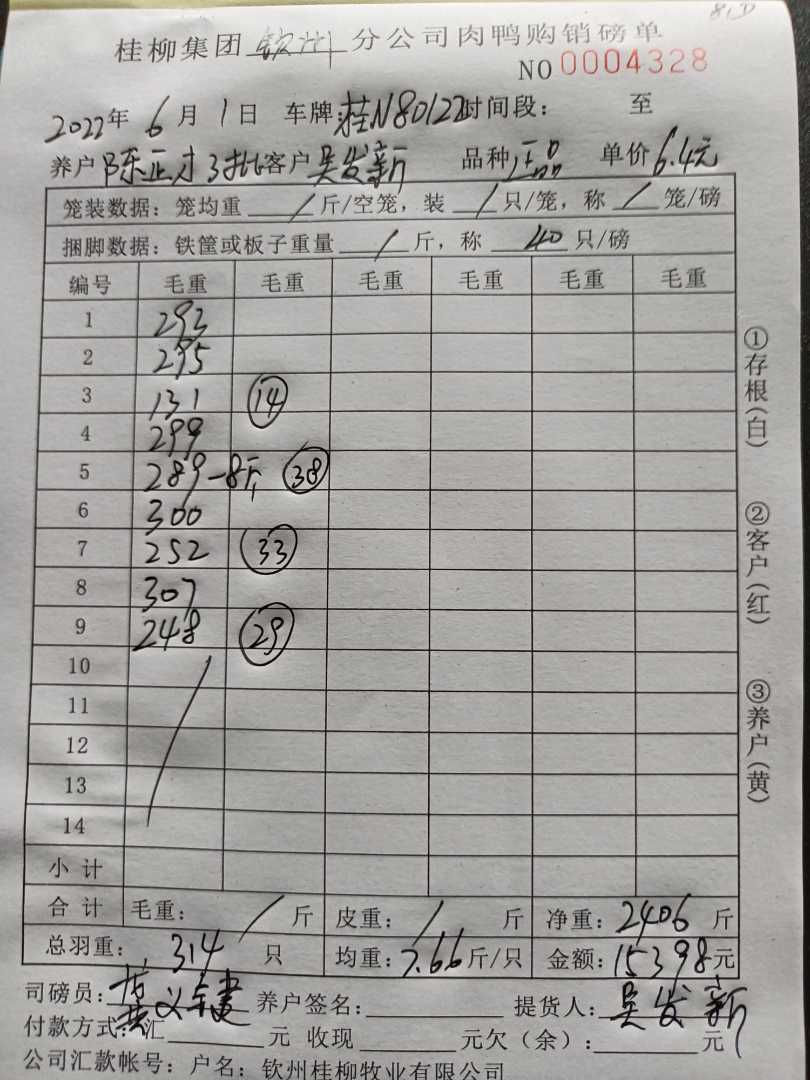 桂柳集团 钦州 分公司肉鸭购销磅单
NO 0004328
2022年 6月 1日 车牌:桂N80122 时间段: 至
养户 陈正才3批 客户 吴发新 品种 正品 单价 6.4元
笼装数据: 笼均重 / 斤/空笼, 装 / 只/笼, 称 / 笼/磅
捆脚数据: 铁筐或板子重量 / 斤, 称 40 只/磅
编号 毛重 毛重 毛重 毛重 毛重 毛重
1 293
2 295
3 131 14
4 299
5 289-8斤 38
6 300
7 252 33
8 307
9 248 29
10
11
12
13
14
小计
合计 毛重: / 斤 皮重: / 斤 净重: 2406 斤
总羽重: 314 只 均重: 7.66 斤/只 金额: 15398 元
司磅员: 养户签名: 提货人: 吴发新
付款方式: 汇 元 收现 元欠(余): 元
公司汇款帐号: 户名: 钦州桂柳牧业有限公司
①存根(白)
②客户(红)
③养户(黄)